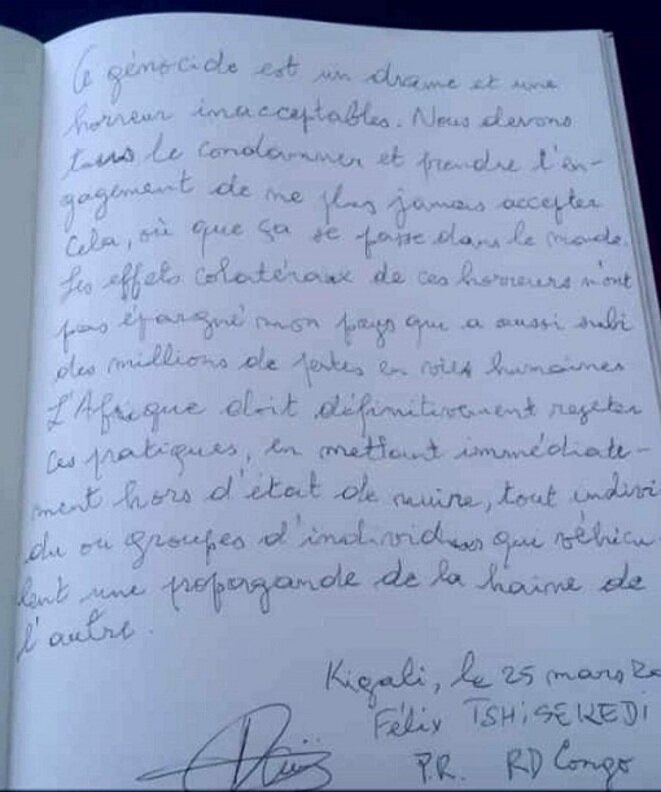 Le génocide est un drame et une
horreur inacceptables. Nous devons
tous le condamner et prendre l'en-
gagement de ne plus jamais accepter
cela, où que ça se passe dans le monde.
Les effets colatéraux de ces horreurs n'ont
pas épargné mon pays qui a aussi subi
des millions de pertes en vies humaines
L'Afrique doit définitivement rejeter
ces pratiques, en mettant immédiate-
ment hors d'état de nuire, tout indivi
du ou groupes d'individus qui véhicu-
lent une propagande de la haine de
l'autre.
Kigali, le 25 mars 20
Félix TSHiSEKEDi
P.R. RD Congo